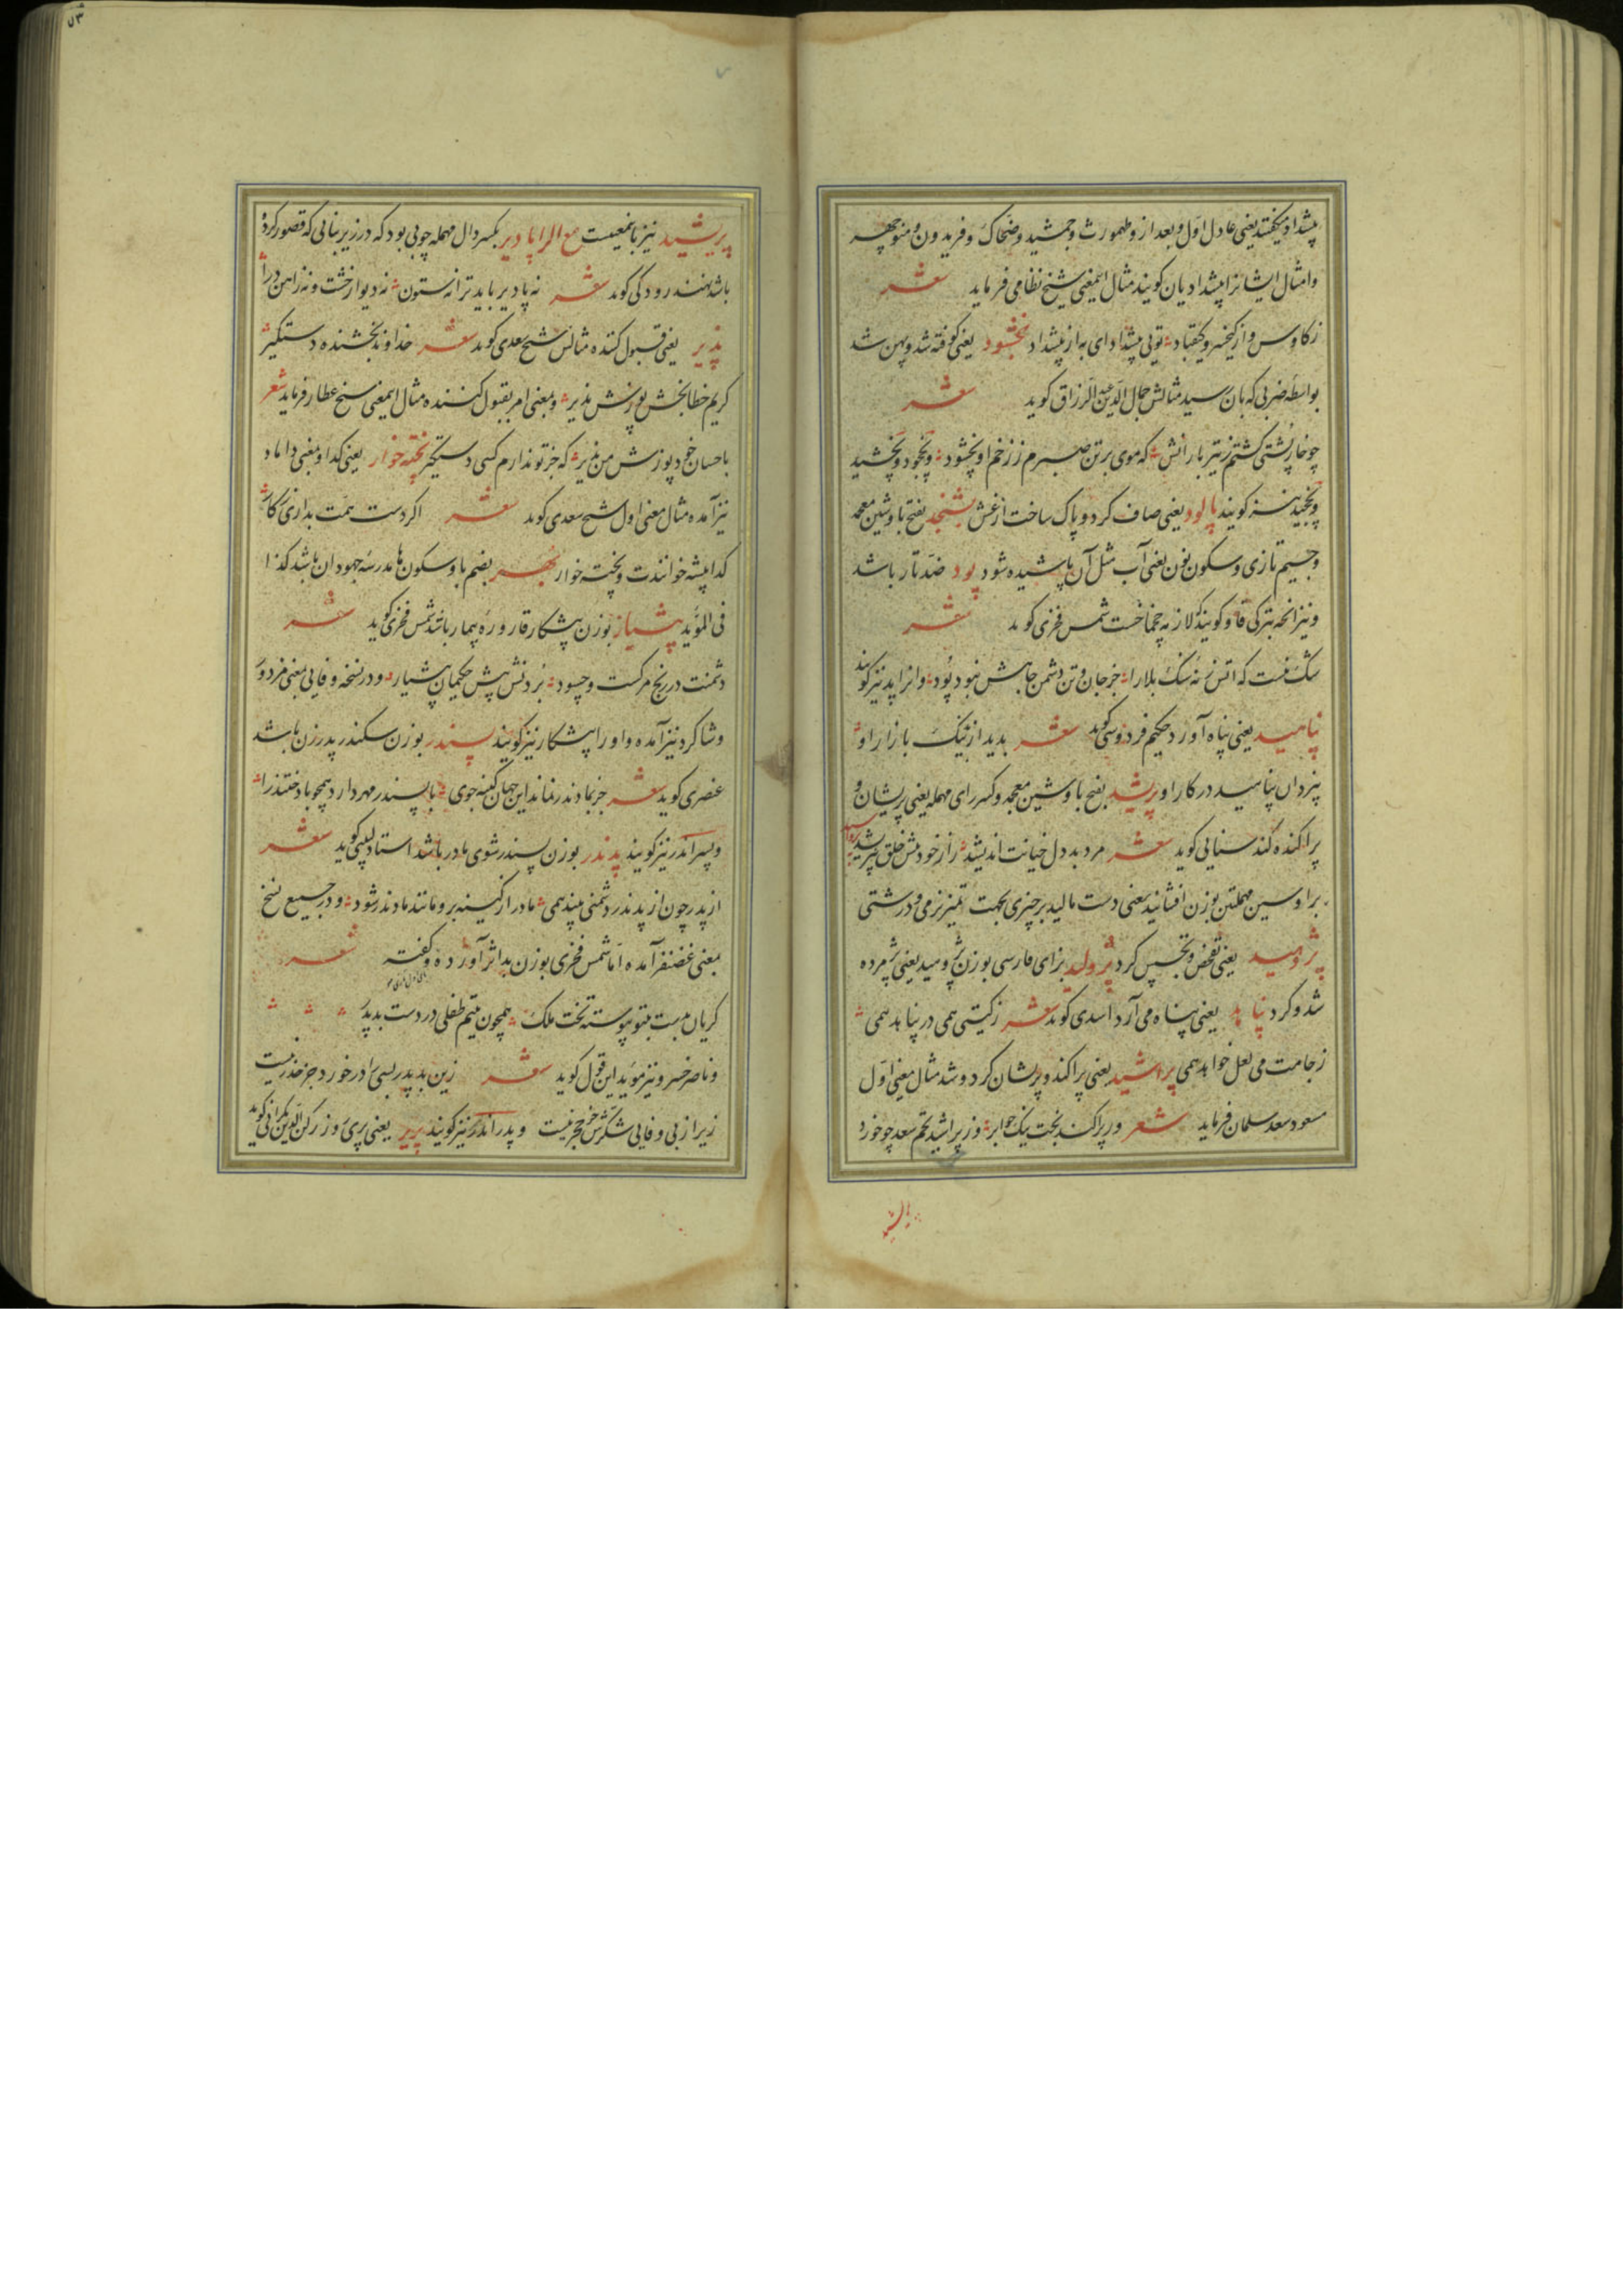 پیشداد میگفتند یعنی عادل اول و بعد از و طهمورث و جمشید و ضحاک و فریدون و منوچهر
و امثال ایشانرا پیشدادیان گویند مثال اینمعنی شیخ نظامی فرماید شعر
ز کاوس و از کیخسرو و کیقباد تویی پیشدادای به از پیشداد بخشود یعنی کوفته شد و پهن شد
بواسطه ضربی که بان رسید مثالش جمال الدین عبدالرزاق گوید شعر
چو خارپشتی گشتم ز تیر بارانش که موی بر تن صبرم ز زخم او پخشود و پخچود و پخشید
و پخچید نیز گویند پالود یعنی صاف کرد و پاک ساخت از غش پشنجد بفتح با و شین معجمه
و جیم تازی و سکون نون یعنی آب و مثل آن پاشیده شود پود ضد تار باشد
و نیز انچه بترکی قاو گویند که از به چخماخست شمس فخری گوید شعر
سنگ فست که اتش زنه سنگ بلا را جز جان و تن دشمن جاهش نبود پود و انرا پد نیز گویند
پناهید یعنی پناه آورد حکیم فردوسی گوید شعر بدید از تنگ بازار او
بیزدان پناهید در کار او پرشد بفتح با و شین معجمه و کسر رای مهمله یعنی پریشان و
پراکنده کند سنایی گوید شعر مرد بد دل خیانت اندیشد راز خود پیش خلق بپریشد
برا و سین مهملتین بوزن افشانید یعنی دست مالید بر چیزی بجهت تمیز نرمی و درشتی
پژوهید یعنی تفحص و تجسس کرد پژولید بزای فارسی بوزن پژوهید یعنی پژمرده
شد و کرد پناهد یعنی پناه می آرد اسدی گوید شعر ز گیتی همی در پناهد همی
ز جامت می لعل خواهد همی پراشید یعنی پراکند و پریشان کرد و شد مثال معنی اول
مسعود سعد سلمان فرماید شعر ور پراکند بخت نیک جوابر وز پراشید تخم سعد چو خورد
پریشید نیز باینمعنیست مع الرا پادیر بکسر دال مهمله چوبی بود که در زیر بنایی که قصور کرده
باشد نهند رودکی گوید شعر نه پادیر باید ترا نه ستون نه دیوار خشت و نه ز اهن درا
پذیر یعنی قبول کننده مثالش شیخ سعدی گوید شعر خداوند بخشنده دستگیر
کریم خطابخش پوزش پذیر و بمعنی امر بقبول کننده مثال اینمعنی شیخ عطار فرماید شعر
باحسان خود پوزش من پذیر که جز تو ندارم کسی دستگیر پخته خوار یعنی گدا و بمعنی داماد
نیز آمده مثال معنی اول شیخ سعدی گوید شعر اگر دست همت بداری ز کار
گدا پیشه خوانندت و پخته خوار بهر بضم با و سکون ها مدرسه جهودان باشد کذا
فی المؤید پیشیار بوزن پیشکار قاروره بیمار باشد شمس فخری گوید شعر
دشمنت در رنج مرکست و حسود بردنش پیش حکیمان پیشیار و در نسخه وفایی بمعنی مزدور
و شاگرد نیز آمده و او را پیشکار نیز گویند پسندر بوزن سکندر پدر زن باشد
عنصری گوید شعر جز بمادندر نماند این جهان کینه جوی با پسندر مهر دارد همچو با دختندرا
و پسر اندر نیز گویند پدندر بوزن پسندر شوی مادر باشد استاد لبیبی گوید شعر
از پدر چون از پدندر دشمنی بیند همی مادر از کینه برو مانند مادندر شود و در جمیع نسخ
بمعنی غضنفر آمده اما شمس فخری بوزن بداثر آورده و گفته شعر
گریان بسبت بتو پیوسته تخت ملک همچون یتیم طفلی در دست بدپدر
و ناصر خسرو نیز مؤید این قول گوید شعر زین بدپدر بسی را در خورد جز حذر نیست
زیرا ز بی وفایی شکرش جز خجر نیست و پدر اندر نیز گویند پریر یعنی پری روز رکن الدین بکرانی گوید